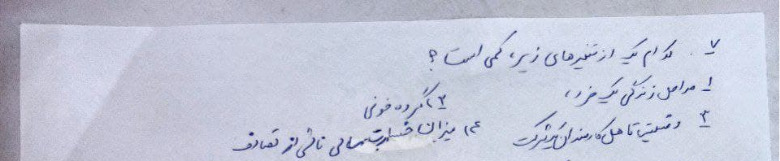 ۷. کدام یک از متغیرهای زیر، کمی است؟
۱ مراحل زندگی یک فرد، ۲) گروه خونی
۳ وضعیت تاهل کارمندان شرکت ۴) میزان خسارت مالی ناشی از تصادف